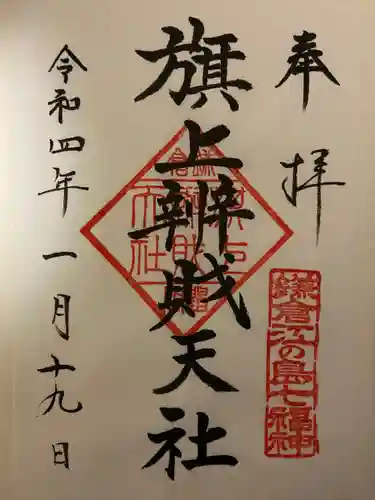 奉拝
鎌倉江の島七福神
旗上辨財天社
令和四年一月十九日